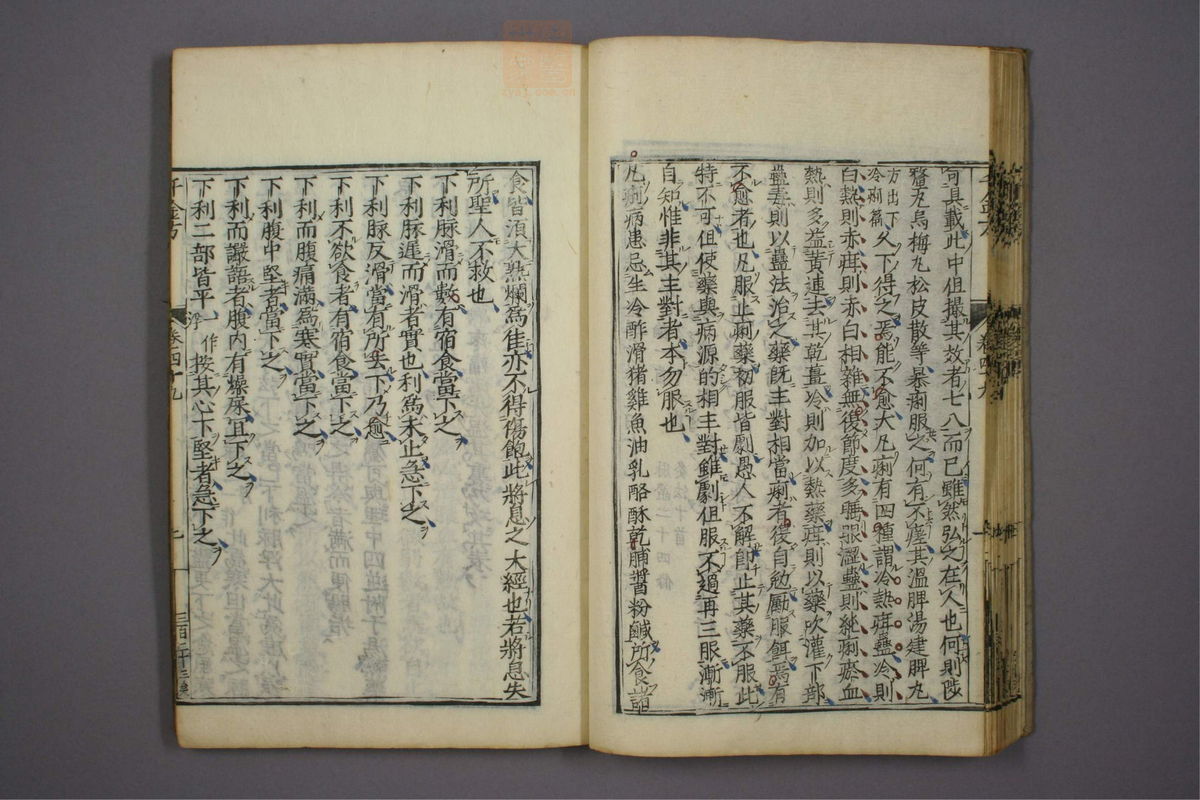 何具載此中但撮其效者七八而已雖然弘之在人也何則陟
釐丸烏梅丸松皮散等暴痢服之何有不瘥其溫脾湯建脾丸
方出下冷痢篇久下得之焉能不愈大凡痢有四種謂冷熱疳蠱冷則
白熱則赤疳則赤白相雜無復節度多睡眼澀蠱則純痢瘀血
熱則多益黃連去其乾薑冷則加以熱藥疳則以藥吹灌下部
蠱毒則以蠱法治之藥既主對相當痢者復自勉勵服餌焉有
不愈者也凡服止痢藥初服皆劇愚人不解即止其藥不服此
特不可但使藥與病源的相主對雖劇但服不過再三服漸漸
自知惟非其主對者本勿服也
凡痢病患忌生冷酢滑猪雞魚油乳酪酥乾脯醬粉鹹所食諸
食皆須大熟爛為佳亦不得傷飽此將息之大經也若將息失
所聖人不救也
下利脉滑而數有宿食當下之
下利脉遲而滑者實也利為未止急下之
下利脉反滑當有所去下乃愈
下利不欲食者有宿食當下之
下利而腹痛滿為寒實當下之
下利腹中堅者當下之
下利而讝語者腹內有燥屎宜下之
下利三部皆平一作浮按其心下堅者急下之
千金方
卷四十九